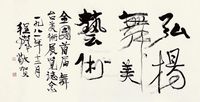 弘揚
舞美
藝術
全國首屆舞
台美術展覽
一九八二年十二月
敬賀